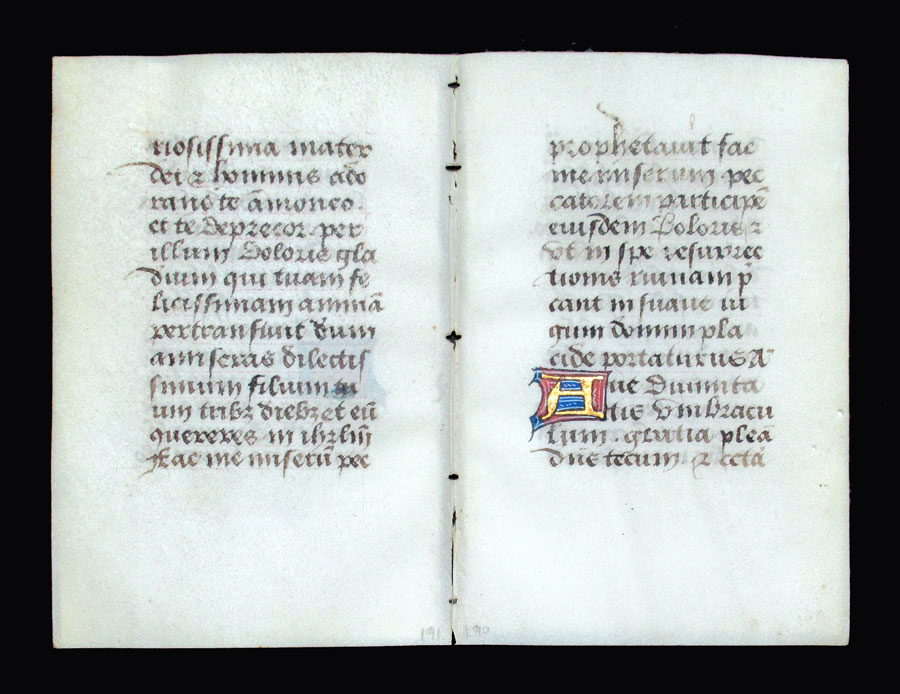 riosissima mater
dei ⁊ hominis ado
rans te āmoneo.
et te deprecor per
illum doloris gla
dium qui tuam fe
licissimam animā
pertransiuit dum
amiseras dilectis
simum filium tu
um tribꝫ diebꝫ et eū
quereres in ihrl̄m̄
Fac me miserū pec
prophetauit fac
me miserum pec
catorem participē
eiusdem doloris ⁊
vt in spe resurrec
tionis
cant in suaue iu
gum domini pla
cide portaturus A
Aue Diuinita
tis vmbracu
lum . gratia pleā
dn̄s tecum ⁊ cetā
191 190